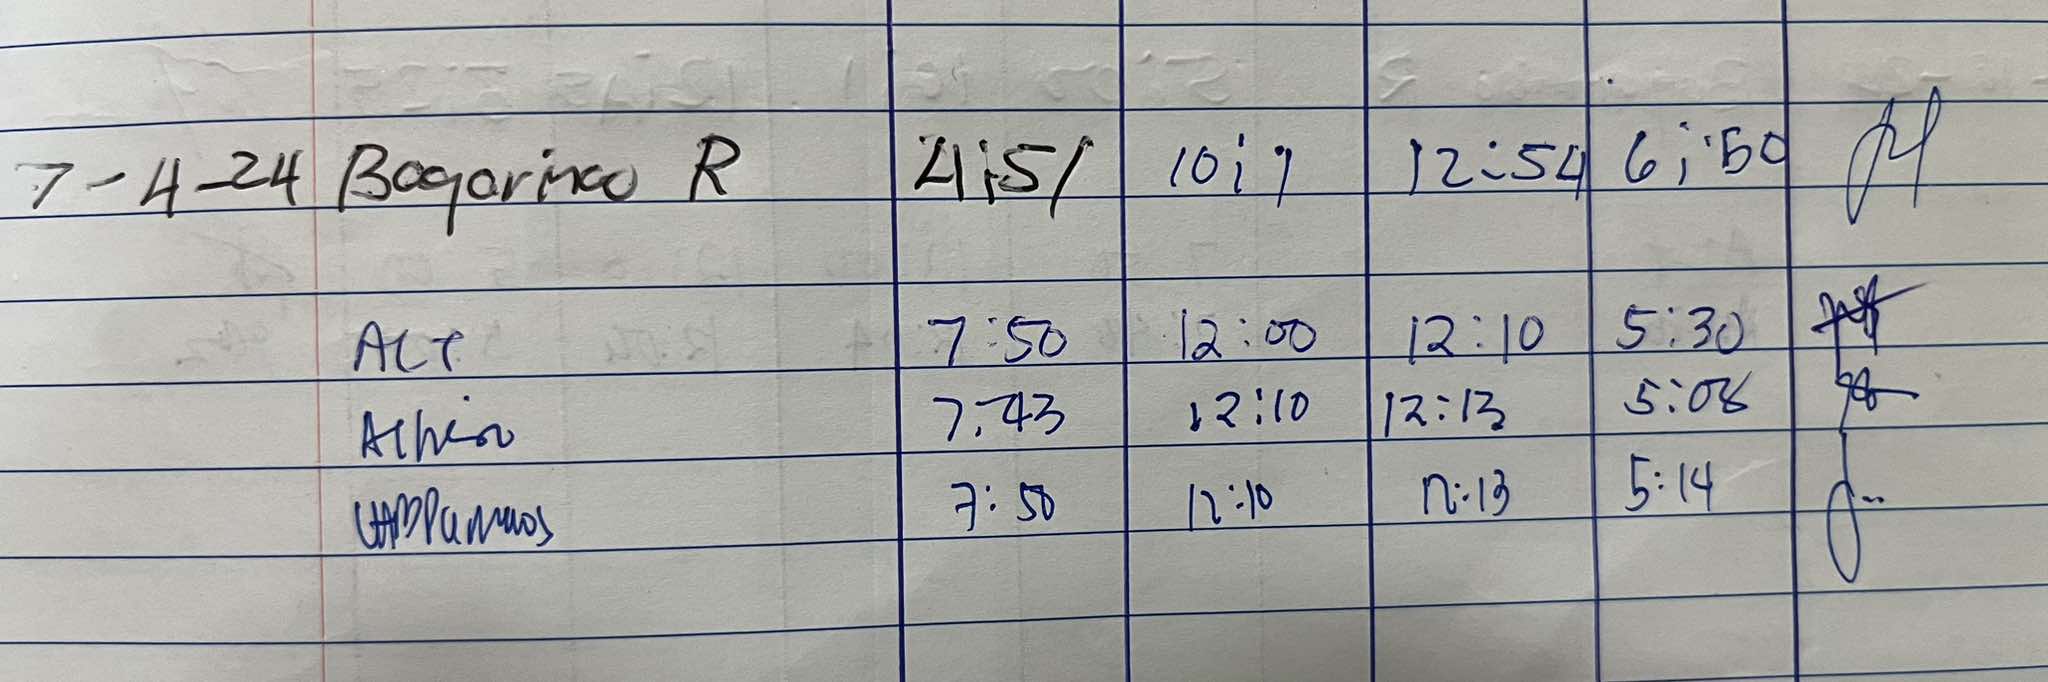 7-4-24 Bagarinao R 4:51 10:1 12:54 6:50
7:50 12:00 12:10 5:30
7:43 12:10 12:13 5:08
7:50 12:10 12:13 5:14